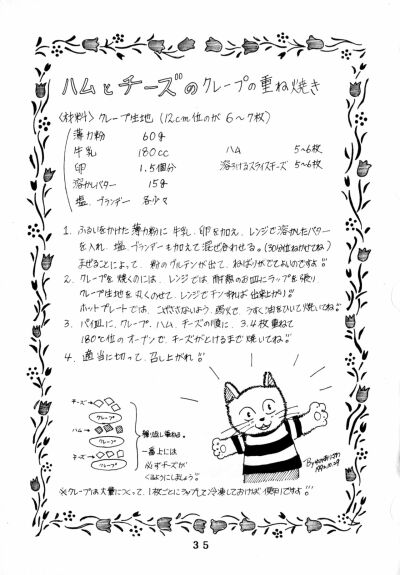 ハムとチーズのクレープの重ね焼き
〈材料〉 クレープ生地 (12cm位のが 6～7枚)
薄力粉 60g
牛乳 180cc ハム 5~6枚
卵 1.5個分 溶けるスライスチーズ 5~6枚
溶かしバター 15g
塩、ブランデー 各少々
1. ふるいをかけた薄力粉に 牛乳、卵を加え、レンジで溶かしたバター
を入れ、塩、ブランデーも加えて混ぜ合わせる。(30分位ねかせてね)
まぜることによって、粉のグルテンが出て、ねばりがでてよいのですよ!!
2. クレープを焼くのには、レンジでは耐熱のお皿にラップを張り
クレープ生地を丸くのせて、レンジでチンすれば出来上がり!!
ホットプレートでは、こげつかないよう、弱火で、うすく油をひいて焼いてね!!
3. パイ皿に、クレープ、ハム、チーズの順に、3.4枚重ねて
180℃位のオーブンで、チーズがとけるまで焼いてね!!
4. 適当に切って、召し上がれ!!
チーズ→
クレープ
ハム→
クレープ
チーズ→
クレープ
繰り返し重ねる。
一番上には
必ずチーズが
くるようにしましょう!!
By
1992.10.29
※クレープは大量につくって、1枚ごとにラップして冷凍しておけば、便利ですよ!!
35